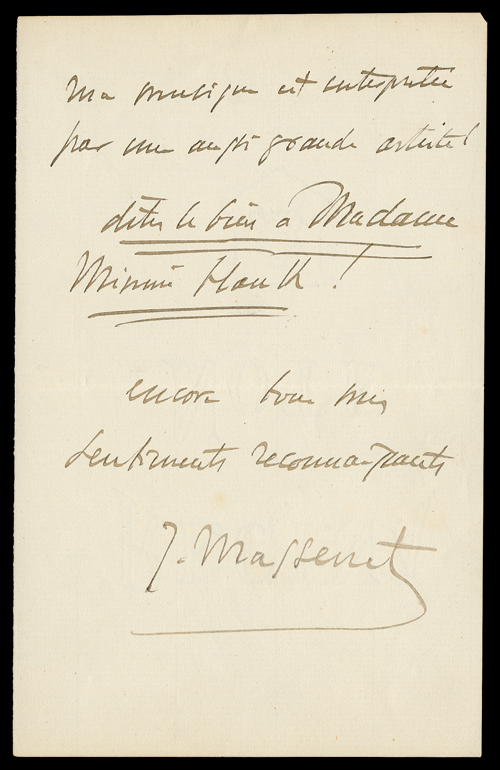 ma musique est interprétée
par une aussi grande artiste!
dites le bien à Madame
Minnie Hauk!
encore tous mes
sentiments reconnaissants
J. Massenet